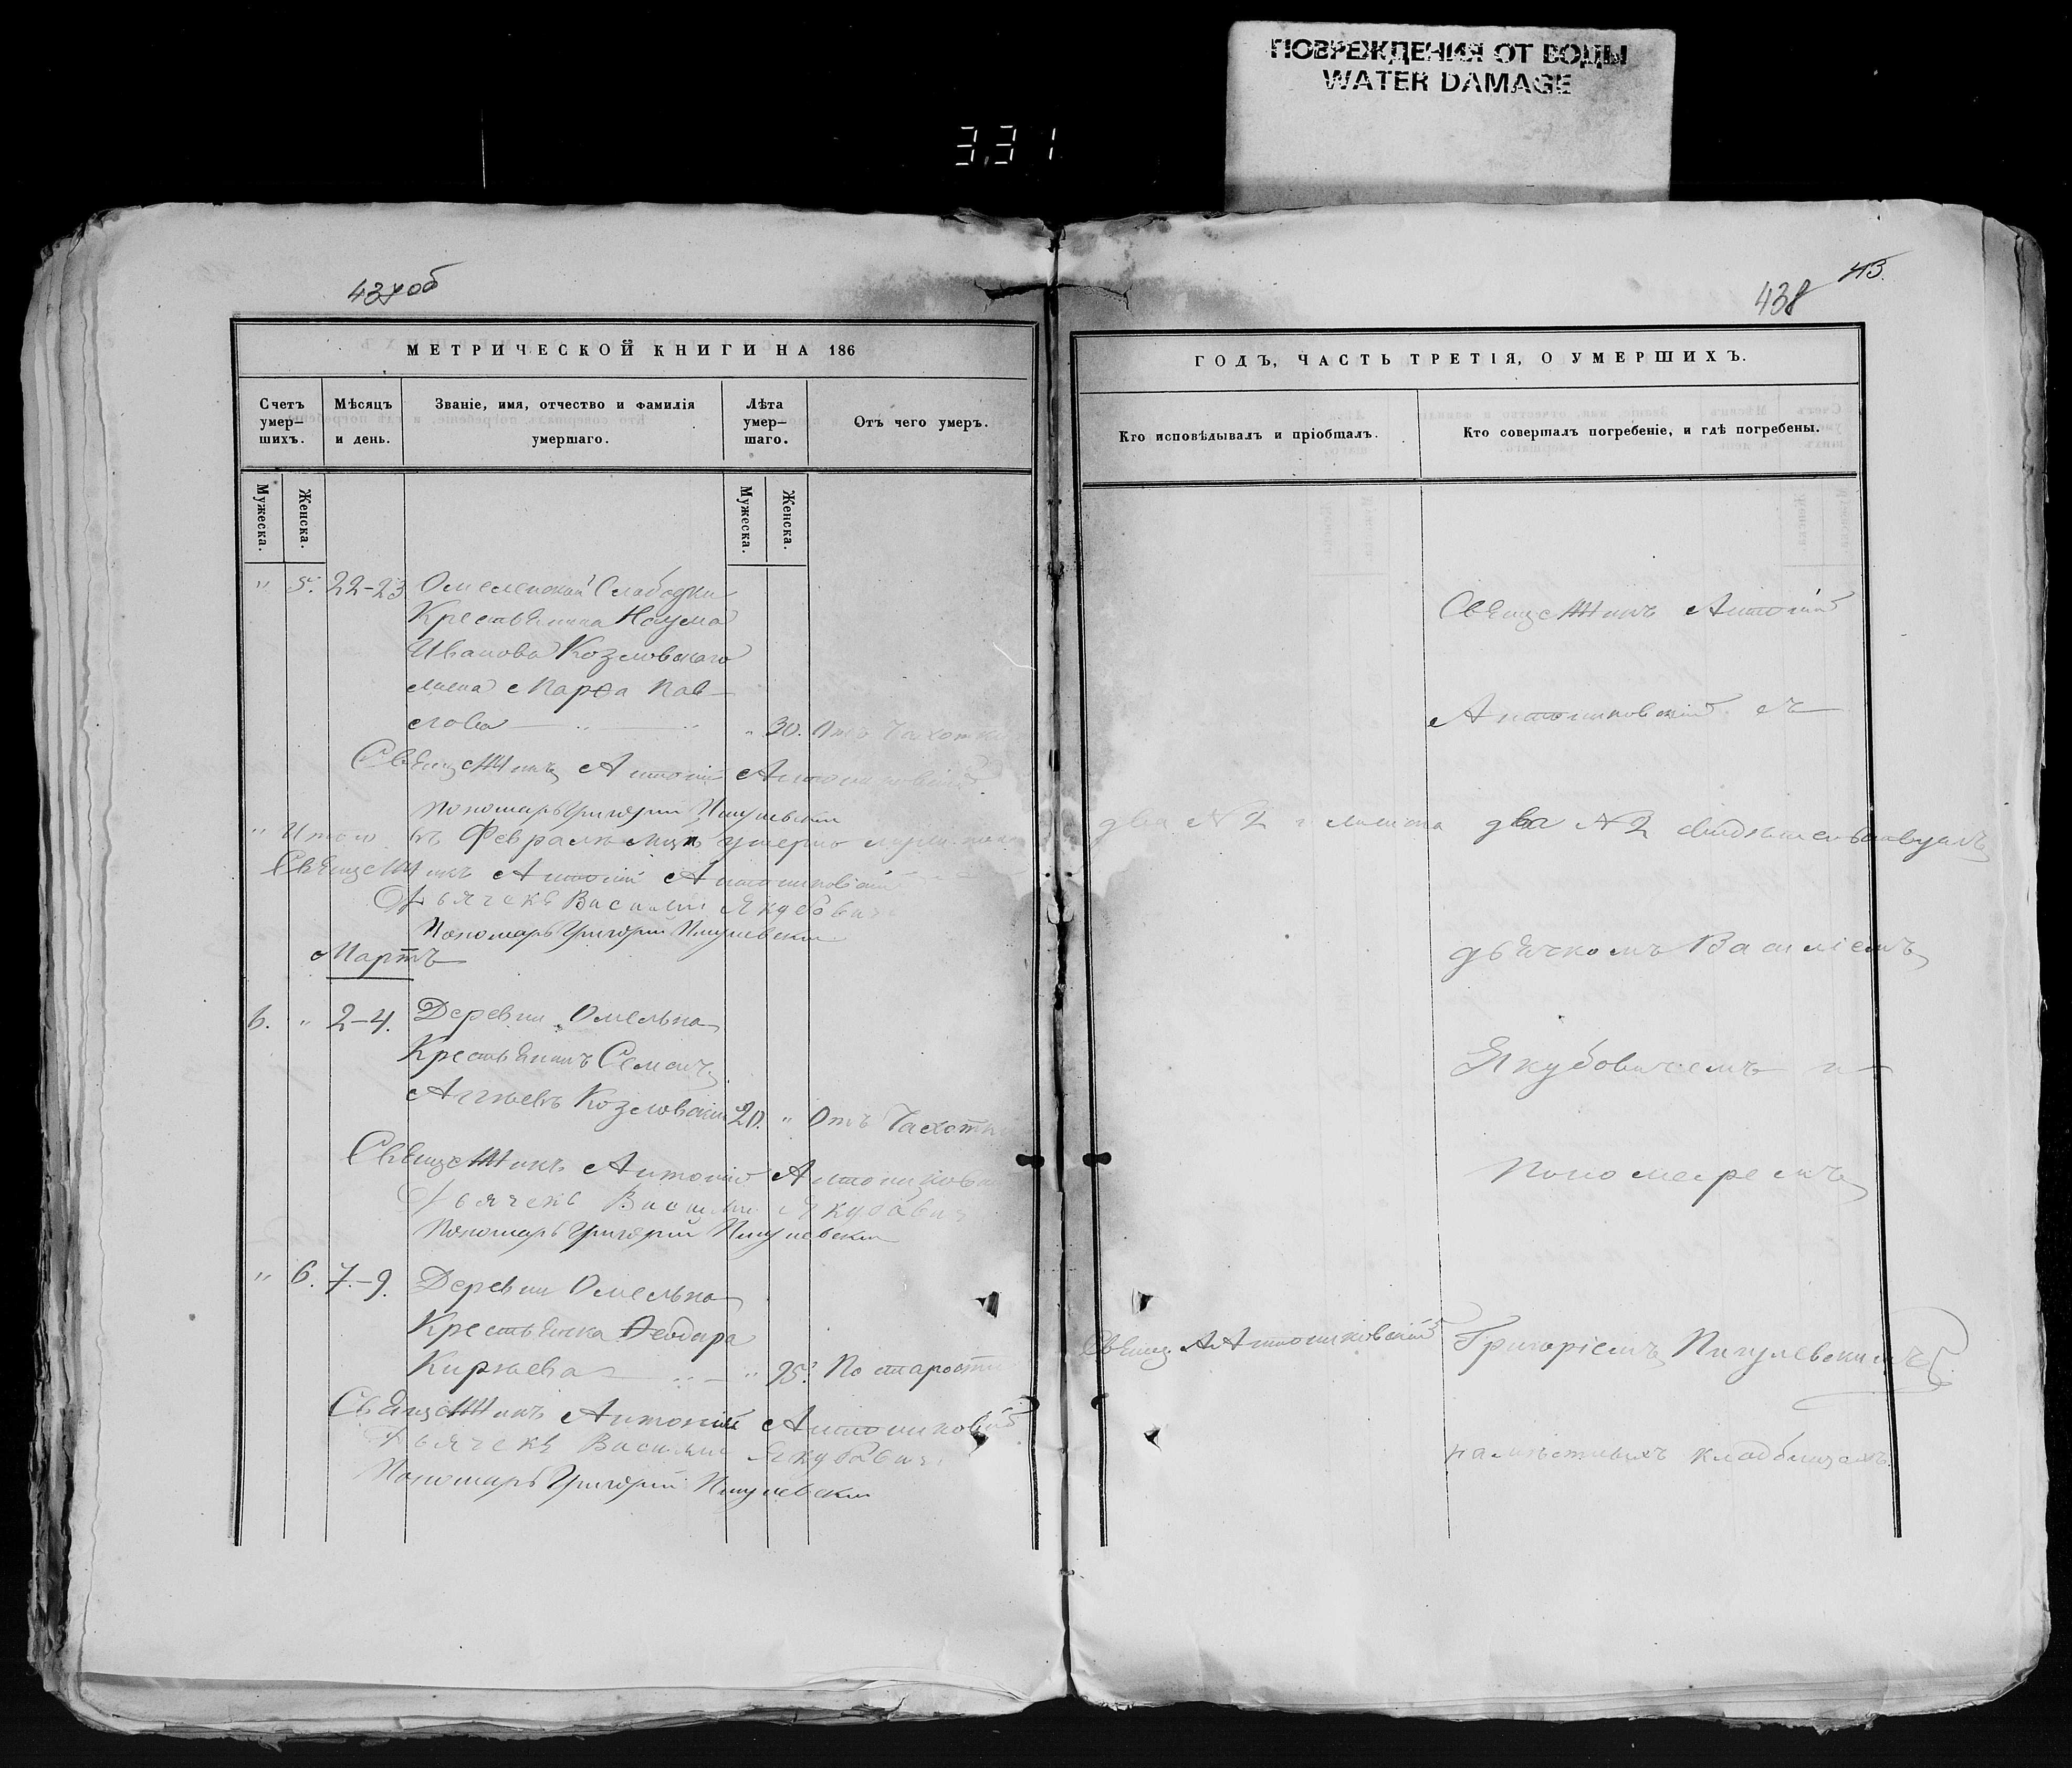 ПОВРЕЖДЕНИЯ ОТ ВОДЫ
WATER DAMAGE
3,31
437об
МЕТРИЧЕСКОЙ КНИГИ НА 186
Счетъ умер-шихъ.
Мѣсяцъ и день.
Званіе, имя, отчество и фамилія умершаго.
Лѣта умер-шаго.
Отъ чего умеръ.
Мужеска.
Женска.
Мужеска.
Женска.
" 5. 22-23 Омеленской Слабодки
Крестьянина Наума
Иванова Козловскаго
жена Марѳа Пав-
лова " 30. Отъ Чахотки
Священникъ Антоній Антониковскій
Пономарь Григорій Пигулевскій
" Итого въ Февралѣ мцѣ умерло
Священникъ Антоній Антониковскій
Дьячекъ Василій Якубовичъ
Пономарь Григорій Пигулевскій
Мартъ
6. " 2-4. Деревни Омельна
Крестьянинъ Семенъ
Козловскій 20. " Отъ Чахотки
Священникъ Антоній Антониковскій
Дьячекъ Василій Якубовичъ
Пономарь Григорій Пигулевскій
" 6. 7-9. Деревни Омельна
Крестьянка Ѳеодора
Кирѣева " 95. По старости
Священникъ Антоній Антониковскій
Дьячекъ Василій Якубовичъ
Пономарь Григорій Пигулевскій
43.
438
ГОДЪ, ЧАСТЬ ТРЕТІЯ, О УМЕРШИХЪ.
Кто исповѣдывалъ и пріобщалъ.
Кто совершалъ погребеніе, и гдѣ погребены.
Священникъ Антоній
Антониковскій съ
два № 2 два № 2 свидѣтельствуалъ
дьячкомъ Василіемъ
Якубовичемъ и
Пономаремъ
Свящ. А Антониковскій Григоріемъ Пигулевскимъ
на мѣстныхъ кладбищахъ.